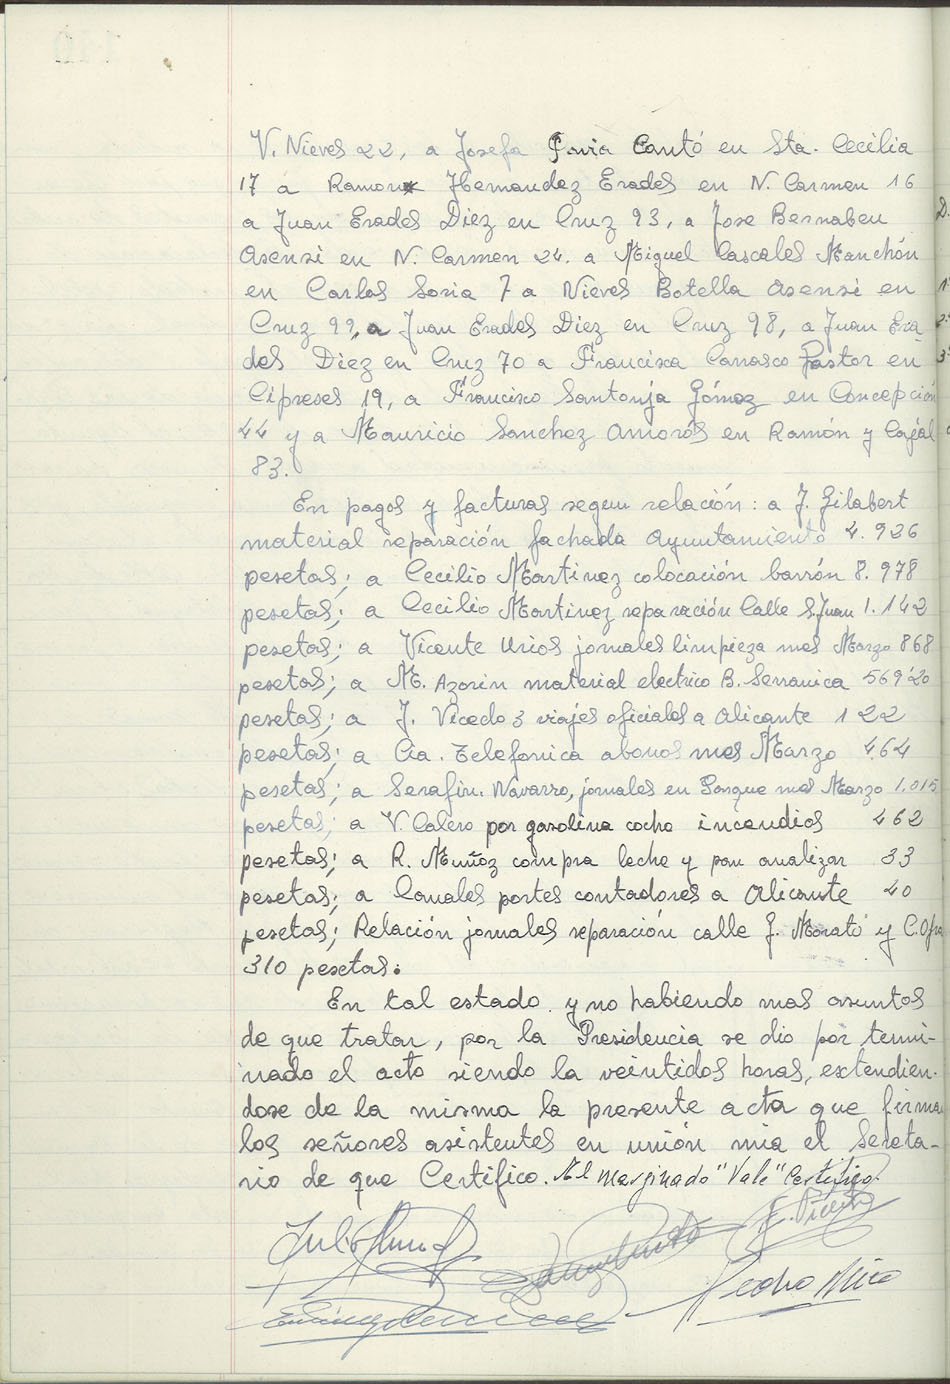 V. Nieves 22, a Josefa Pavia Cantó en Sta. Cecilia
17 a Ramon Hernandez Erades en N. Carmen 16
a Juan Erades Diez en Cruz 93, a Jose Bernabeu
Asensi en N. Carmen 24. a Miguel Cascales Manchón
en Carlos Soria 7 a Nieves Botella Asensi en
Cruz 99, a Juan Erades Diez en Cruz 98, a Juan Era
des Diez en Cruz 70 a Francisca Carrasco Pastor en
Cipreses 19, a Francisco Santonja Gómez en Concepción
44 y a Mauricio Sanchez Amorós en Ramón y Cajal
83.
En pagos y facturas segun relación: a J. Gilabert
material reparación fachada Ayuntamiento 4.926
pesetas; a Cecilio Martinez colocación barrón 8.978
pesetas; a Cecilio Martinez reparación Calle S. Juan 1.142
pesetas; a Vicente Urios jornales limpieza mes Marzo 868
pesetas; a M. Azorin material electrico B. Serranica 569'20
pesetas; a J. Vicedo 3 viajes oficiales a Alicante 122
pesetas; a Cia. Telefonica abonos mes Marzo 464
pesetas; a Serafin Navarro, jornales en Parque mes Marzo 1.015
pesetas; a V. Calero por gasolina coche incendios 462
pesetas; a R. Muñoz compra leche y pan analizar 33
pesetas; a Canales portes contadores a Alicante 40
pesetas; Relación jornales reparación calle J. Morató y C.
310 pesetas.
En tal estado y no habiendo mas asuntos
de que tratar, por la Presidencia se dio por termi-
nado el acto siendo la veintidos horas, extendien-
dose de la misma la presente acta que firma
los señores asistentes en unión mia el Secreta-
rio de que Certifico. Al marginado "Vale" Certifico.
Pedro Mico